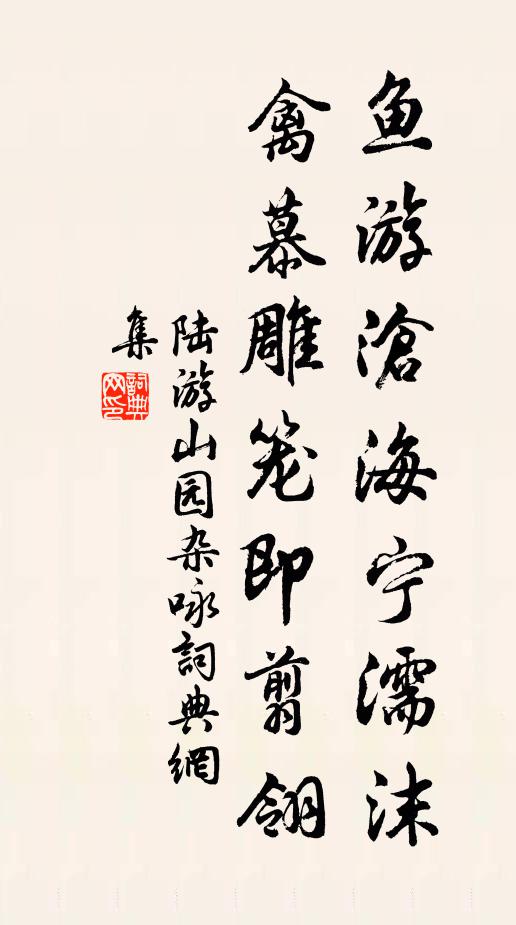 鱼游滄海宁濡沫
禽慕雕笼即翦翎
陆游山园杂咏詞典網
集
詞典网印